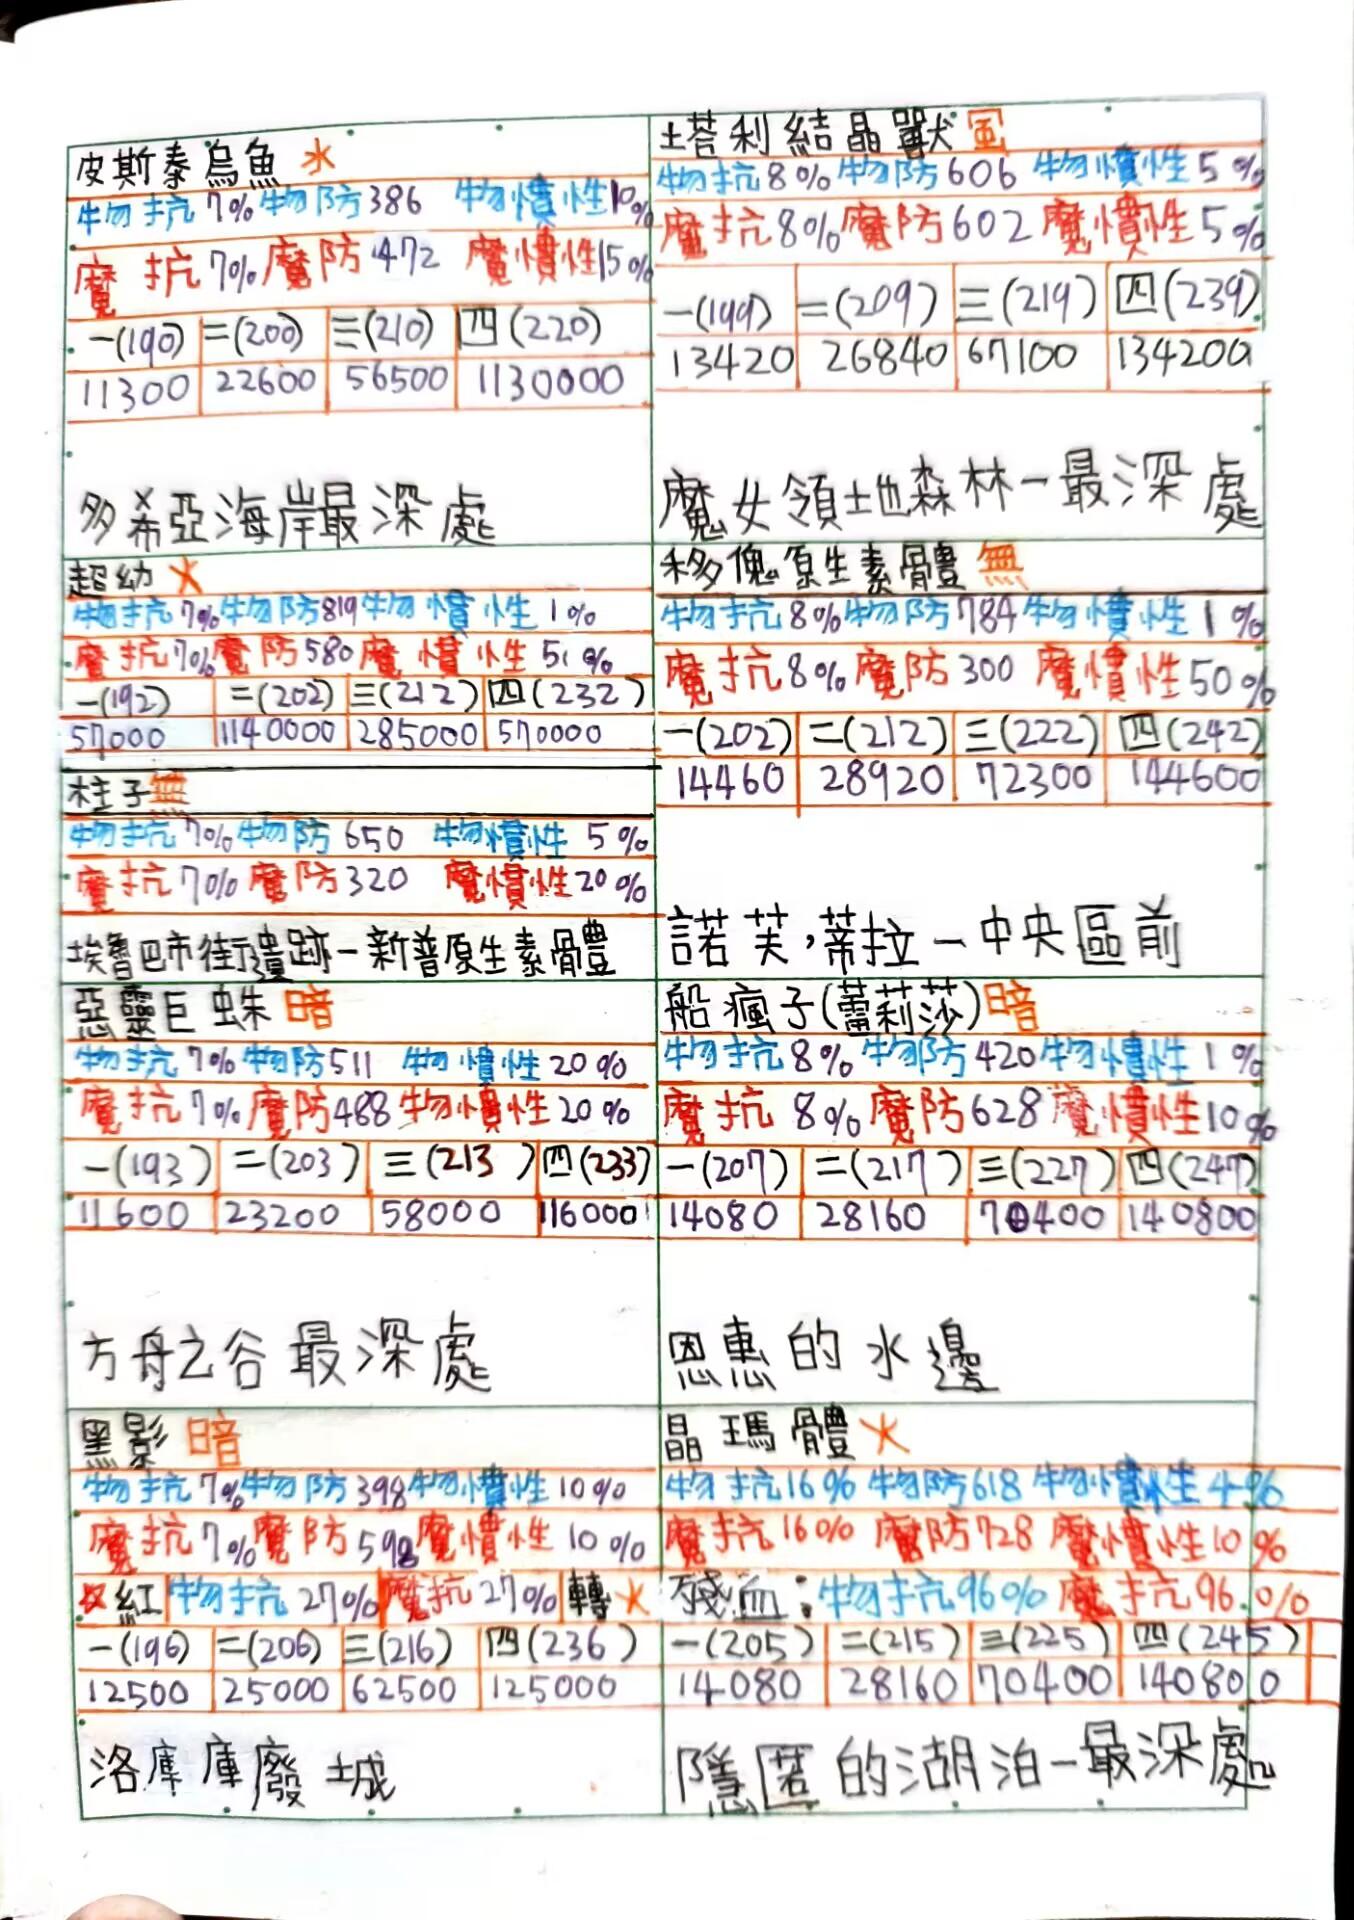 皮斯泰烏魚 水
物抗7%物防386 物慣性10%
魔抗7%魔防472 魔慣性15%
一(190) 二(200) 三(210) 四(220)
11300 22600 56500 1130000
多希亞海岸最深處
塔利結晶獸 風
物抗8%物防606 物慣性5%
魔抗8%魔防602 魔慣性5%
一(199) 二(209) 三(219) 四(239)
13420 26840 67100 134200
魔女領土地森林-最深處
超幼 火
物抗7%物防819物慣性1%
魔抗7%魔防580魔慣性51%
一(192) 二(202) 三(212) 四(232)
57000 1140000 285000 570000
柱子 無
物抗7%物防650 物慣性5%
魔抗7%魔防320 魔慣性20%
埃魯巴市街遺跡-新普原生素體
移傀原生素體 無
物抗8%物防784物慣性1%
魔抗8%魔防300 魔慣性50%
一(202) 二(212) 三(222) 四(242)
14460 28920 72300 144600
諾芙,蒂拉-中央區前
惡靈巨蛛 暗
物抗7%物防511 物慣性20%
魔抗7%魔防488物慣性20%
一(193) 二(203) 三(213) 四(233)
11600 23200 58000 116000
方舟之谷最深處
船瘋子(蕾莉莎)暗
物抗8%物防420物慣性1%
魔抗8%魔防628魔慣性10%
一(207) 二(217) 三(227) 四(247)
14080 28160 70400 140800
恩惠的水邊
黑影 暗
物抗7%物防398物慣性10%
魔抗7%魔防598魔慣性10%
紅 物抗27% 魔抗27% 轉火
一(196) 二(206) 三(216) 四(236)
12500 25000 62500 125000
洛庫庫廢城
晶瑪體 火
物抗16%物防618物慣性4%
魔抗16%魔防728魔慣性10%
殘血:物抗96%魔抗96%
一(205) 二(215) 三(225) 四(245)
14080 28160 70400 140800
隱匿的湖泊-最深處